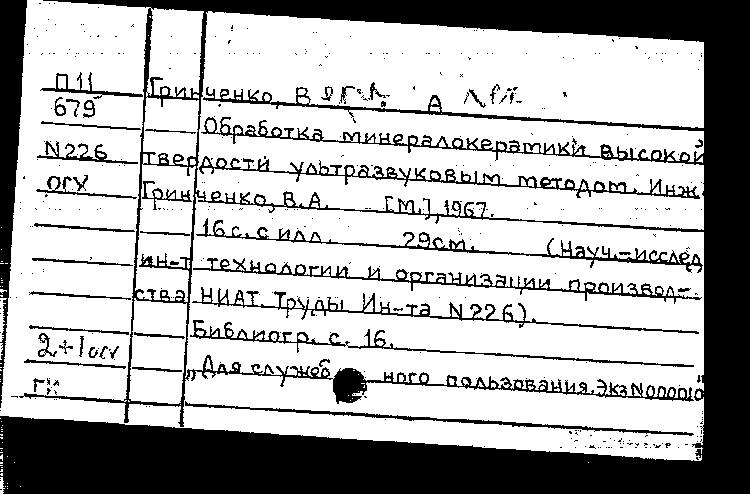 П11 Гринченко, В А
679 Обработка минералокератики высокой
N226 твердости ультразвуковым методом. Инж.
ОГХ Гринченко, В.А. [М.], 1967.
16 с. с илл. 29см. (Науч.-исслед
ин-т технологии и организации производ-
ства НИАТ. Труды Ин-та N226).
Библиогр. с. 16.
2+1огх
„Для служеб ного пользования. Экз N000010"